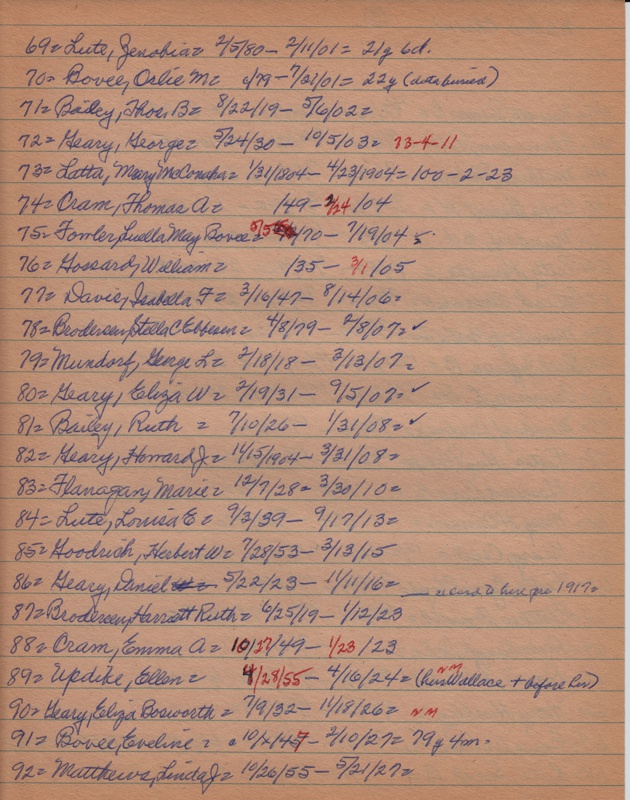 69= Lute, Zenobia= 2/5/80 - 2/11/01= 21y 6d.
70= Bovee, Orlie M= c/79 - 7/21/01= 22y (date buried)
71= Bailey, Thos. B= 8/22/19 - 5/6/02=
72= Geary, George= 5/24/30 - 10/5/03= 73-4-11
73= Latta, Mary McConaha= 1/31/1804 - 4/23/1904= 100-2-23
74= Cram, Thomas A= /49 - 2/24/04
75= Fowler, Luella May Bovee= 5/5 /70 - 7/19/04
76= Gossard, William= /35 - 3/1/05
77= Davis, Isabella F= 3/16/47 - 8/14/06=
78= Brodersen, Stella C Ebbesen= 4/8/79 - 2/8/07= ✓
79= Mundorf, George L= 2/18/18 - 3/13/07=
80= Geary, Eliza W= 2/19/31 - 9/5/07= ✓
81= Bailey, Ruth = 7/10/26 - 1/31/08= ✓
82= Geary, Howard J= 11/15/1904 - 3/31/08=
83= Flanagan, Marie= 12/7/28= 3/30/10=
84= Lute, Louisa E= 9/3/39 - 9/17/13=
85= Goodrich, Herbert W= 7/28/53 - 3/13/15
86= Geary, Daniel = 5/22/23 - 11/11/16= to here pre 1917=
87= Brodersen, Harriett Ruth= 6/25/19 - 1/12/23
88= Cram, Emma A= 10/27/49 - 1/23/23
89= Updike, Ellen= 4/28/55 - 4/16/24= (hus. Wallace + before her) NM
90= Geary, Eliza Bosworth= 7/9/32 - 11/18/26= NM
91= Bovee, Eveline= c 10/x/47 - 2/10/27= 79y 4m=
92= Matthews, Linda J= 10/26/55 - 5/21/27=